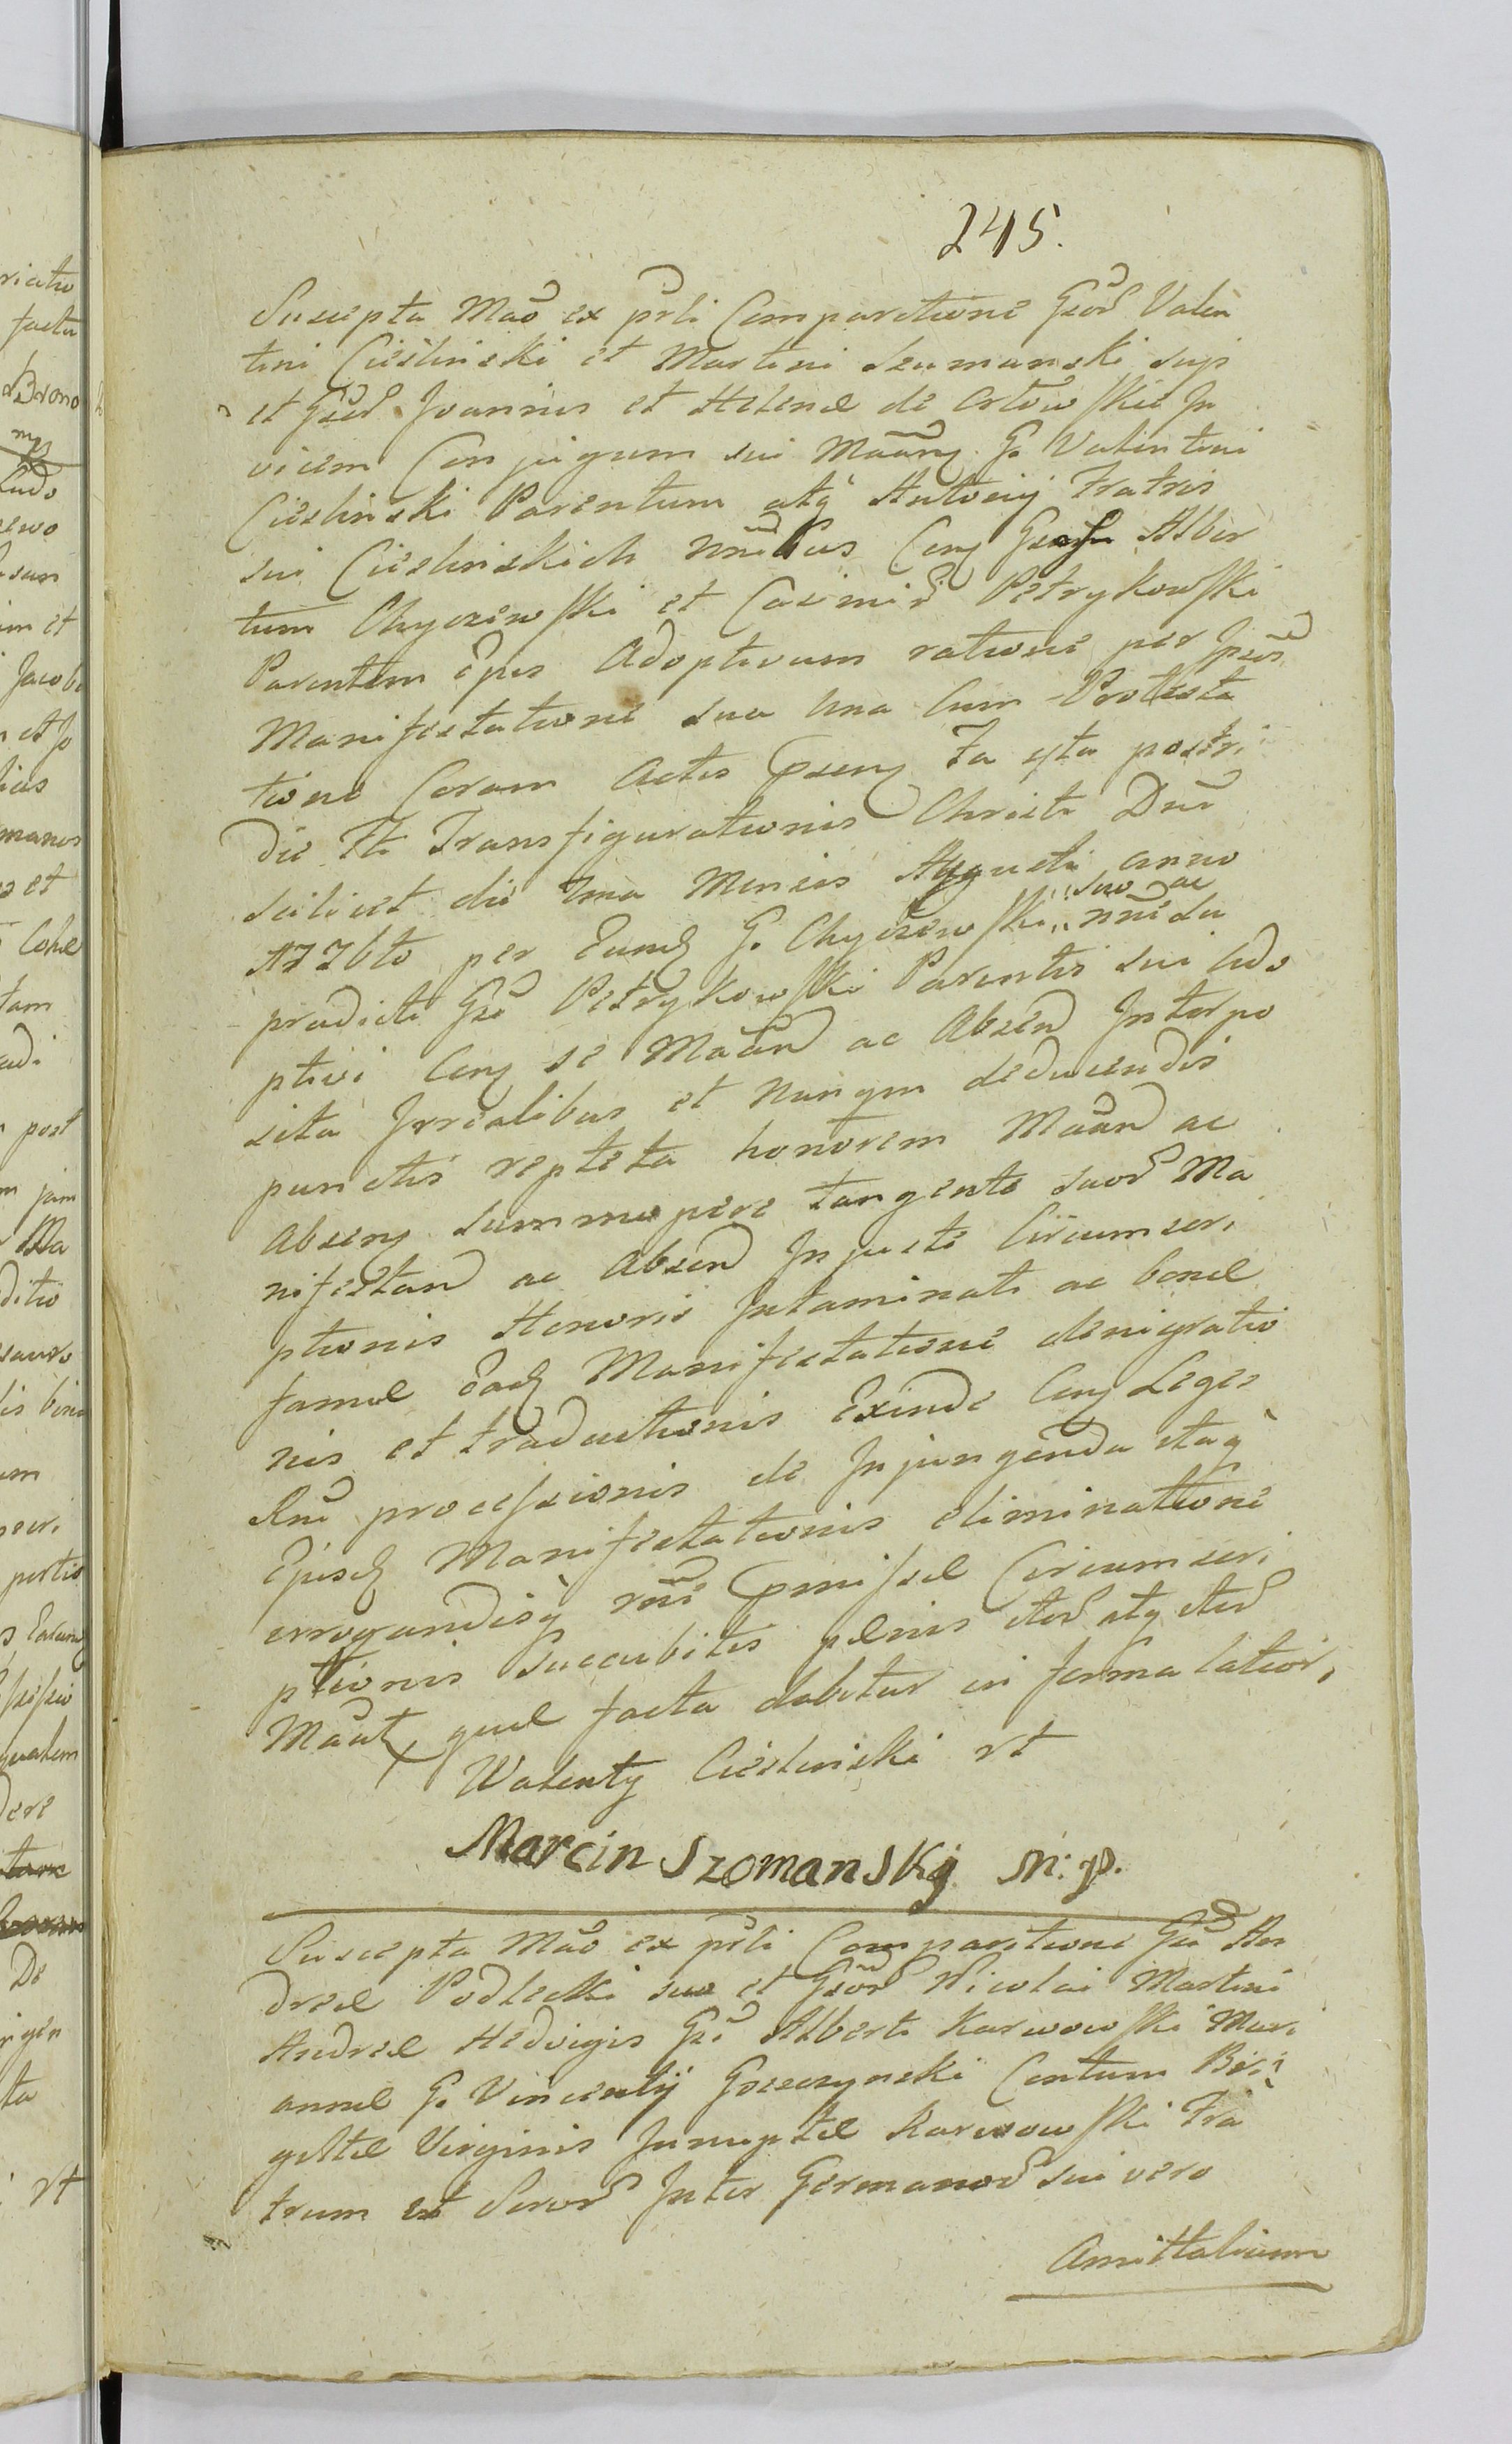 245.
Suscepta Mãõ ex prli Comparitione Gsor Valen
tini Cieslinski et Martini Szumanski supi
et Gsor Joannis et Helenæ de Orłowskie In
vicem Conjugum sui Mãnỹ G. Valentini
Cieslinski Parentum atq Antonij Fratris
sui Cieslinskich nnibus Con Gsum Alber
tum Chyczewski et Casimir Petrykowski
Parentem Ejus Adoptivum ratione per Ipsos
Manifestatione sua una cum Protesta
tione Coram Actis psenq Fa ssta postri
die Fti Transfigurationis Christi Dni
scilicet die 7ma Mensis Augusti anno
1776to per Eund G. Chyczewski suo ac nnie du
prædicti Gsi Petrykowski Parentis sui ado
ptivi Con se Mãnd ac Absen Interpo
sita Irrealibus et nunqm deducendis
punctis repleta honorem Mãand ac
Absenq summopere tangente suor Ma
nifestan ac Absen Injuste Circumscri
ptionis Honoris Intaminati ac bonæ
famæ Ead Manifestatione denigratio
nis et traductionis Exinde Con Leges
Rni processionis de Injungenda itaq
Ejusd Manifestationis eliminatione
errogandisq rõne pmissæ Circumscri
ptionis Succubitis pænis iteř atq iteř
Mãnt quæ facta dabitur in forma latior,
Walenty Ciesliński rt
Marcin Szomanskj m: p.
Suscepta Mãõ ex prli Comparitione Gsi An
dreæ Podlecki suo et Gsor Nicolai Martini
Andreæ Hedvigis Gsi Alberti Karwowski Mari
annæ G. Vincentij Gosczynski Contum Bri
gittæ Virginis Innuptæ Karwowski Fra
trum et Soror Inter Germanor sui vero
Amittalium